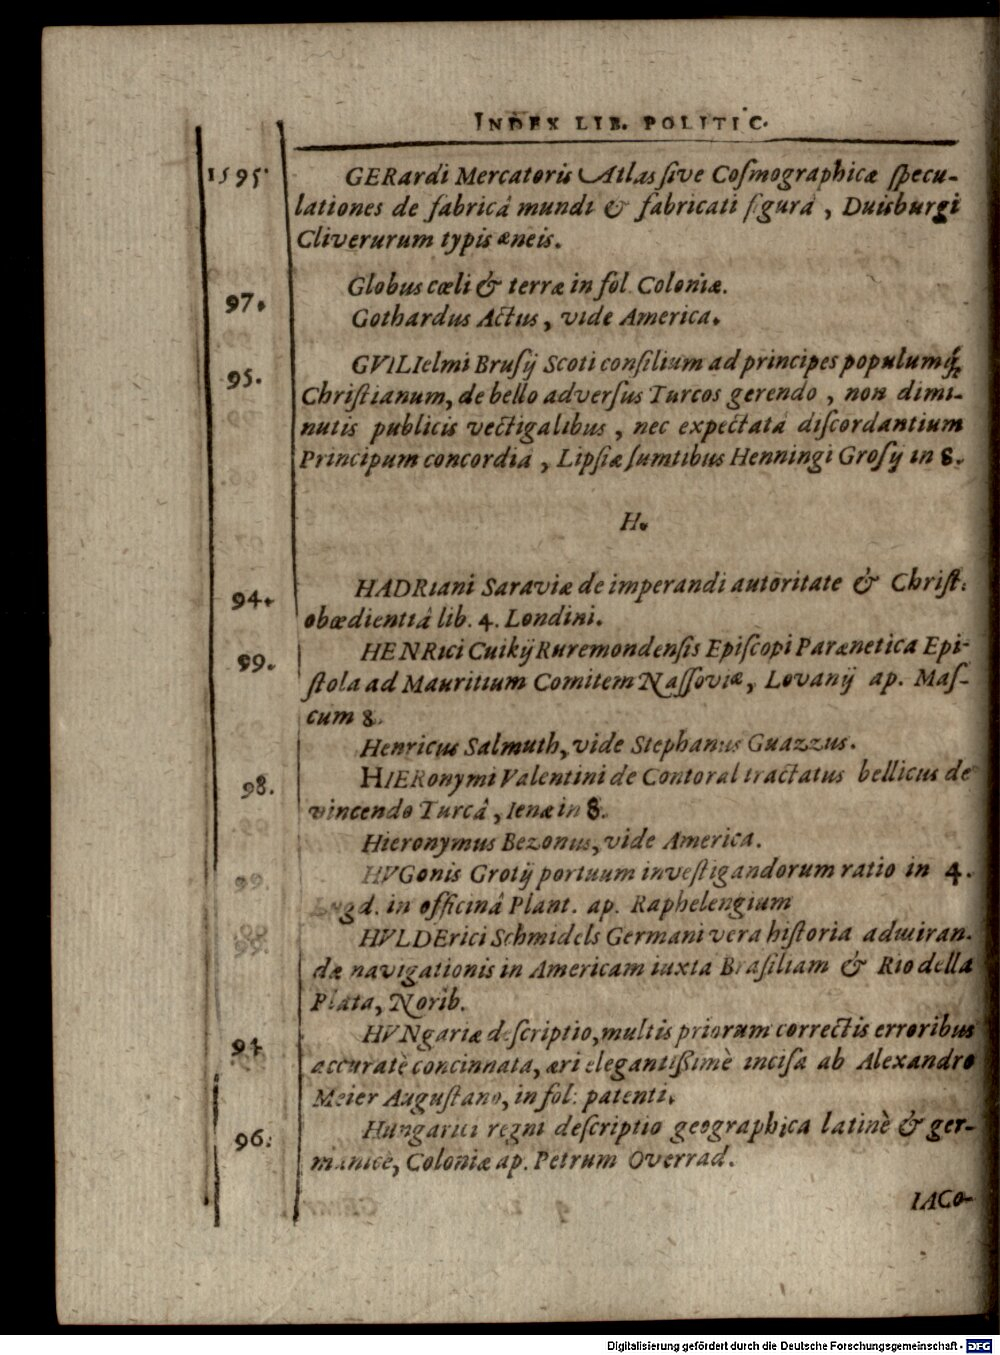 INDEX LIB. POLITIC.
1595. GERardi Mercatoris Atlas ſive Coſmographicæ ſpecu-
lationes de fabricâ mundi & fabricati figurâ, Duisburgi
Cliverurum typis æneis.
Globus cœli & terræ in fol. Coloniæ.
97.
Gothardus Actus, vide America.
GVILIelmi Bruſij Scoti conſilium ad principes populumq́;
95.
Chriſtianum, de bello adverſus Turcos gerendo, non dimi-
nutis publicis vectigalibus, nec expectatâ diſcordantium
Principum concordiâ, Lipſiæ ſumtibus Henningi Groſij in 8.
H.
94. HADRiani Saraviæ de imperandi autoritate & Chriſt.
obœdientiâ lib. 4. Londini.
99. HENRici Cuikij Ruremondenſis Epiſcopi Parænetica Epi-
ſtola ad Mauritium Comitem Naſſoviæ, Lovanij ap. Maſ-
cum 8.
Henricus Salmuth, vide Stephanus Guazzus.
98. HIERonymi Valentini de Contoral tractatus bellicus de
vincendo Turcâ, Ienæ in 8.
Hieronymus Bezonus, vide America.
99. HVGonis Grotij portuum inveſtigandorum ratio in 4.
Lugd. in officinâ Plant. ap. Raphelengium
99. HVLDErici Schmidels Germani vera hiſtoria admiran-
dæ navigationis in Americam iuxta Braſiliam & Rio della
Plata, Norib.
94. HVNgariæ deſcriptio, multis priorum correctis erroribus
accuratè concinnata, æri elegantißimè inciſa ab Alexandro
Meier Auguſtano, in fol: patenti.
96. Hungarici regni deſcriptio geographica latinè & ger-
manicè, Coloniæ ap. Petrum Overrad.
IACo-
Digitalisierung gefördert durch die Deutsche Forschungsgemeinschaft - DFG